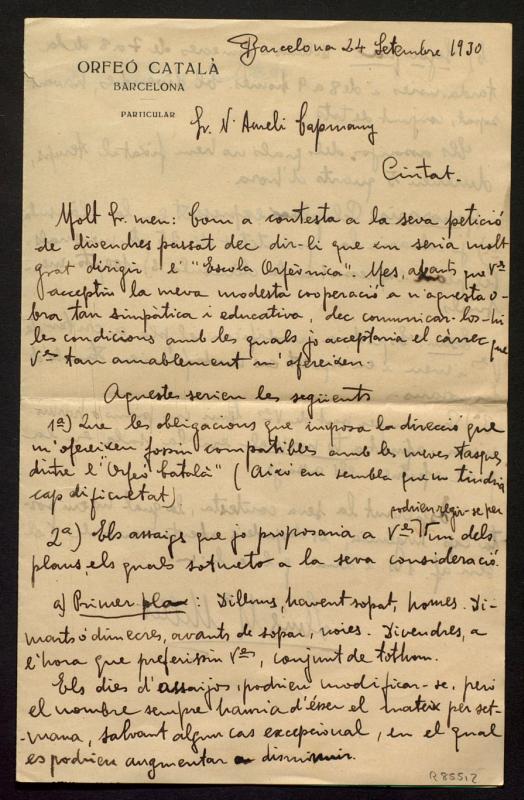 Barcelona 24 Setembre 1930
ORFEÓ CATALÀ
BARCELONA
PARTICULAR
Sr. N'Aureli Capmany
Ciutat.
Molt Sr. meu: Com a contesta a la seva petició
de divendres passat dec dir-li que em seria molt
grat dirigir l'"Escola Orfeònica". Mes, abants que Vès
acceptin la meva modesta cooperació a n'aquesta o-
bra tan simpàtica i educativa, dec comunicar-los-hi
les condicions amb les quals jo acceptaria el càrrec que
Vès tan amablement m'ofereixen.
Aquestes serien les següents
1ª) Que les obligacions que imposa la direcció que
m'ofereixen fossin compatibles amb les meves tasques
dintre l'"Orfeó Català" (Això em sembla que no tindria
cap dificultat)
podrien regir-se per
2ª) Els assaigs que jo proposaria a Vès un dels
plans, els quals sotmeto a la seva consideració.
a) Primer pla: Dilluns, havent sopat, homes. Di-
marts ó dimecres, avants de sopar, noies. Divendres, a
l'hora que preferissin Vès, conjunt de tothom.
Els dies d'assaijos, podrien modificar-se, però
el nombre sempre hauria d'ésser el mateix per set-
mana, salvant algun cas excepcional, en el qual
es podrien augmentar o disminuir.
R 85512